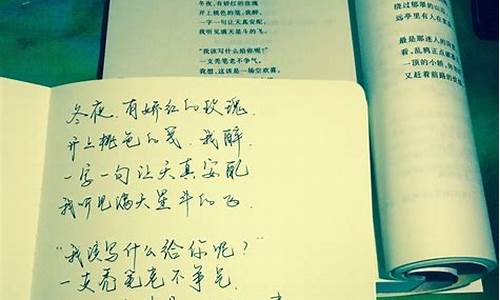 冬夜，有娇红的玫瑰
开上桃色的笺，我醉，
一字一句让天真安配
我听见满天星斗的飞，
“我该写什么给你呢？”
一支秃笔老不争气，
我想，这该是一场空欢喜。
绕过郁翠的
远亭里有人在
最是那迷人的
看，乱鸦正
一顶的小轿，
又赶着前路的
冬夜，有娇红的玫瑰
开上桃色的笺，我醉
一字一句让天真安配
我听见满天星斗的飞
“我该写什么给你呢？”
一支秃笔老不争气